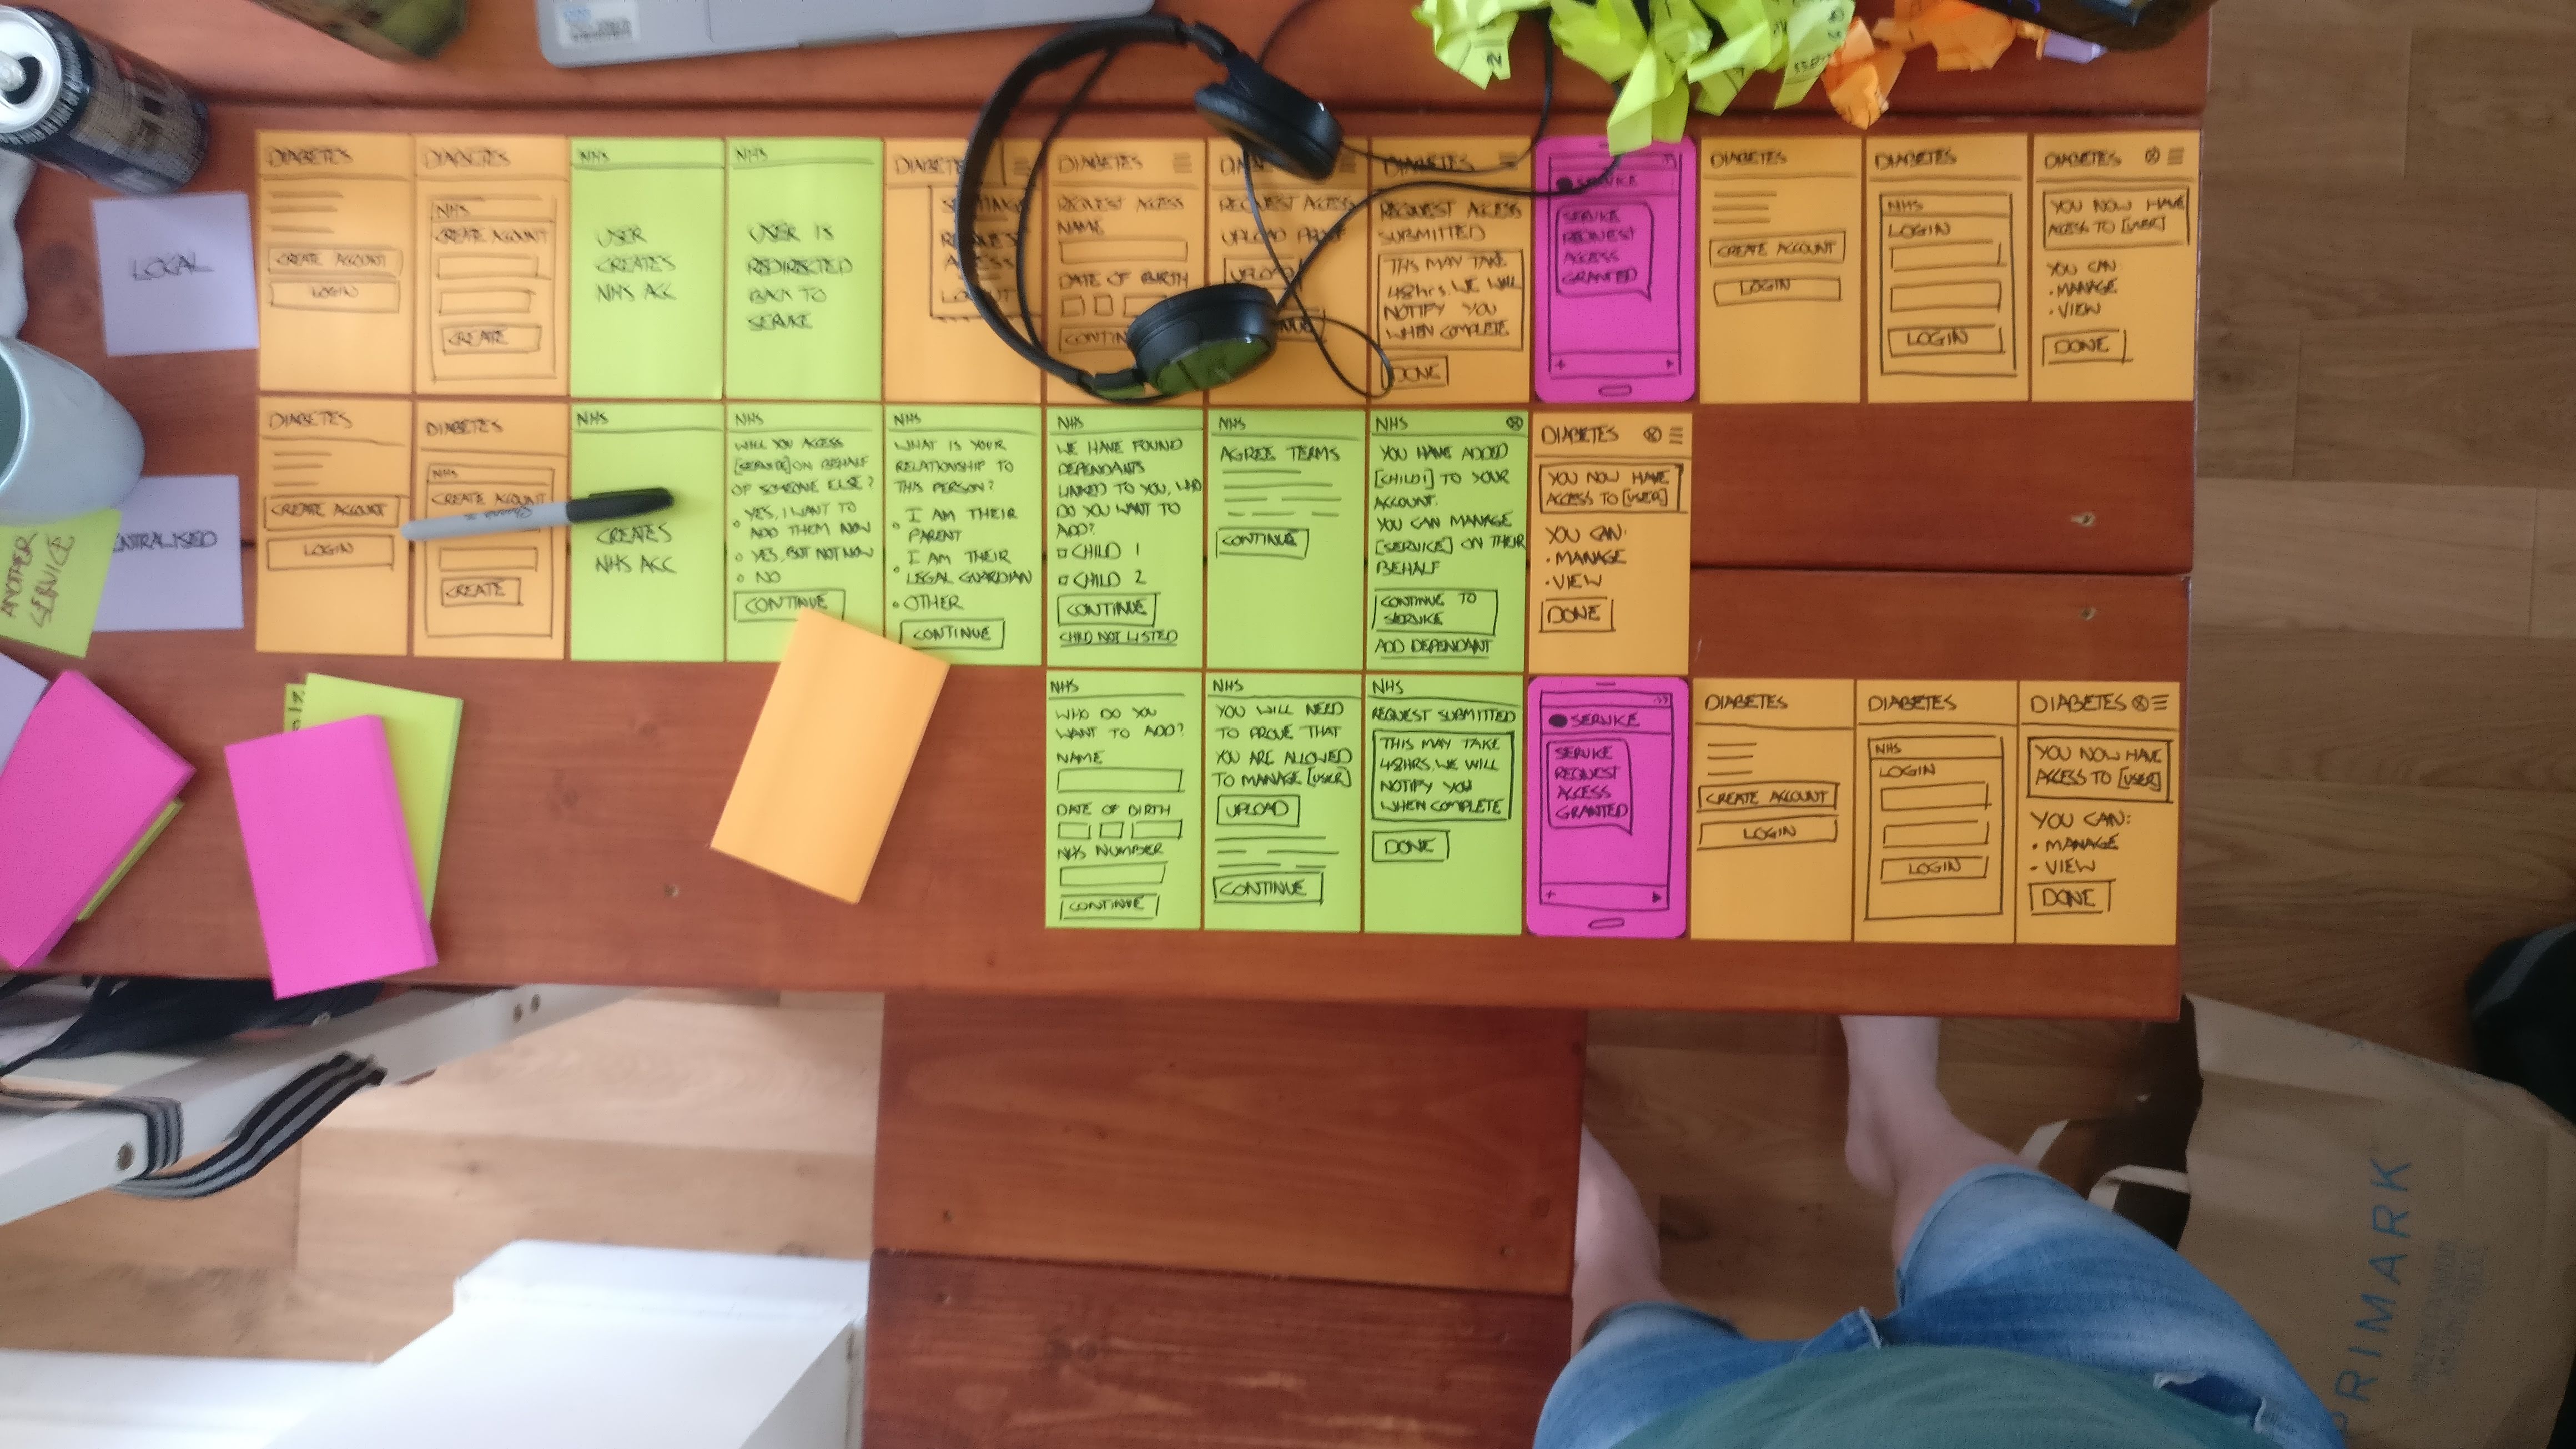 LOCAL
DIABETES
CREATE ACCOUNT
LOGIN
DIABETES
NHS
CREATE ACOUNT
CREATE
NHS
USER
CREATES
NHS ACC
NHS
USER IS
REDIRECTED
BACK TO
SERVICE
DIABETES
DIABETES
REQUEST ACCESS
NAME
DATE OF BIRTH
REQUEST ACCESS
UPLOAD
UPLOAD
DIABETES
REQUEST ACCESS
SUBMITTED
THIS MAY TAKE
48hrs. WE WILL
NOTIFY YOU
WHEN COMPLETE
DONE
SERVICE
SERVICE
REQUEST
ACCESS
GRANTED
DIABETES
CREATE ACCOUNT
LOGIN
DIABETES
NHS
LOGIN
LOGIN
DIABETES
YOU NOW HAVE
ACCESS TO [USER]
YOU CAN:
• MANAGE
• VIEW
DONE
ANOTHER
SERVICE
DIABETES
CREATE ACCOUNT
LOGIN
DIABETES
NHS
CREATE ACOUNT
CREATE
NHS
CREATES
NHS ACC
NHS
WILL YOU ACCESS
[SERVICE] ON BEHALF
OF SOMEONE ELSE?
YES, I WANT TO
ADD THEM NOW
YES, BUT NOT NOW
NO
CONTINUE
NHS
WHAT IS YOUR
RELATIONSHIP TO
THIS PERSON?
I AM THEIR
PARENT
I AM THEIR
LEGAL GUARDIAN
OTHER
CONTINUE
NHS
WE HAVE FOUND
DEPENDANTS
LINKED TO YOU, WHO
DO YOU WANT TO
ADD?
CHILD 1
CHILD 2
CONTINUE
CHILD NOT LISTED
NHS
AGREE TERMS
CONTINUE
NHS
YOU HAVE ADDED
[CHILD1] TO YOUR
ACCOUNT.
YOU CAN MANAGE
[SERVICE] ON THEIR
BEHALF
CONTINUE TO
SERVICE
ADD DEPENDANT
DIABETES
YOU NOW HAVE
ACCESS TO [USER]
YOU CAN:
• MANAGE
• VIEW
DONE
NHS
WHO DO YOU
WANT TO ADD?
NAME
DATE OF BIRTH
NHS NUMBER
CONTINUE
NHS
YOU WILL NEED
TO PROVE THAT
YOU ARE ALLOWED
TO MANAGE [USER]
UPLOAD
CONTINUE
NHS
REQUEST SUBMITTED
THIS MAY TAKE
48HRS. WE WILL
NOTIFY YOU
WHEN COMPLETE
DONE
SERVICE
SERVICE
REQUEST
ACCESS
GRANTED
DIABETES
CREATE ACCOUNT
LOGIN
DIABETES
NHS
LOGIN
LOGIN
DIABETES
YOU NOW HAVE
ACCESS TO [USER]
YOU CAN:
• MANAGE
- VIEW
DONE
PRIMARK